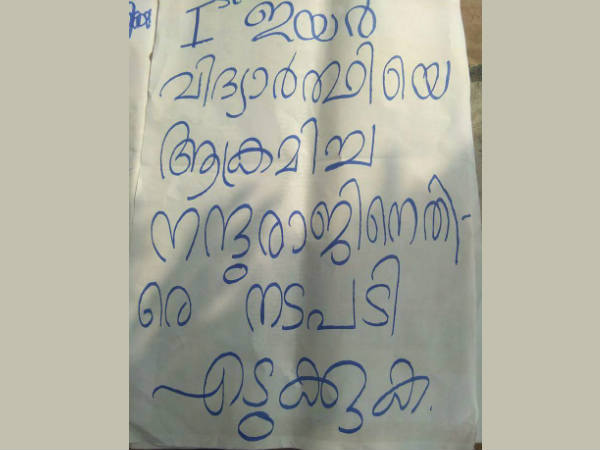 Iˢᵗ ഇയർ
വിദ്യാർത്ഥിയെ
ആക്രമിച്ച
നന്ദുരാജിനെതി-
രെ നടപടി
എടുക്കുക.